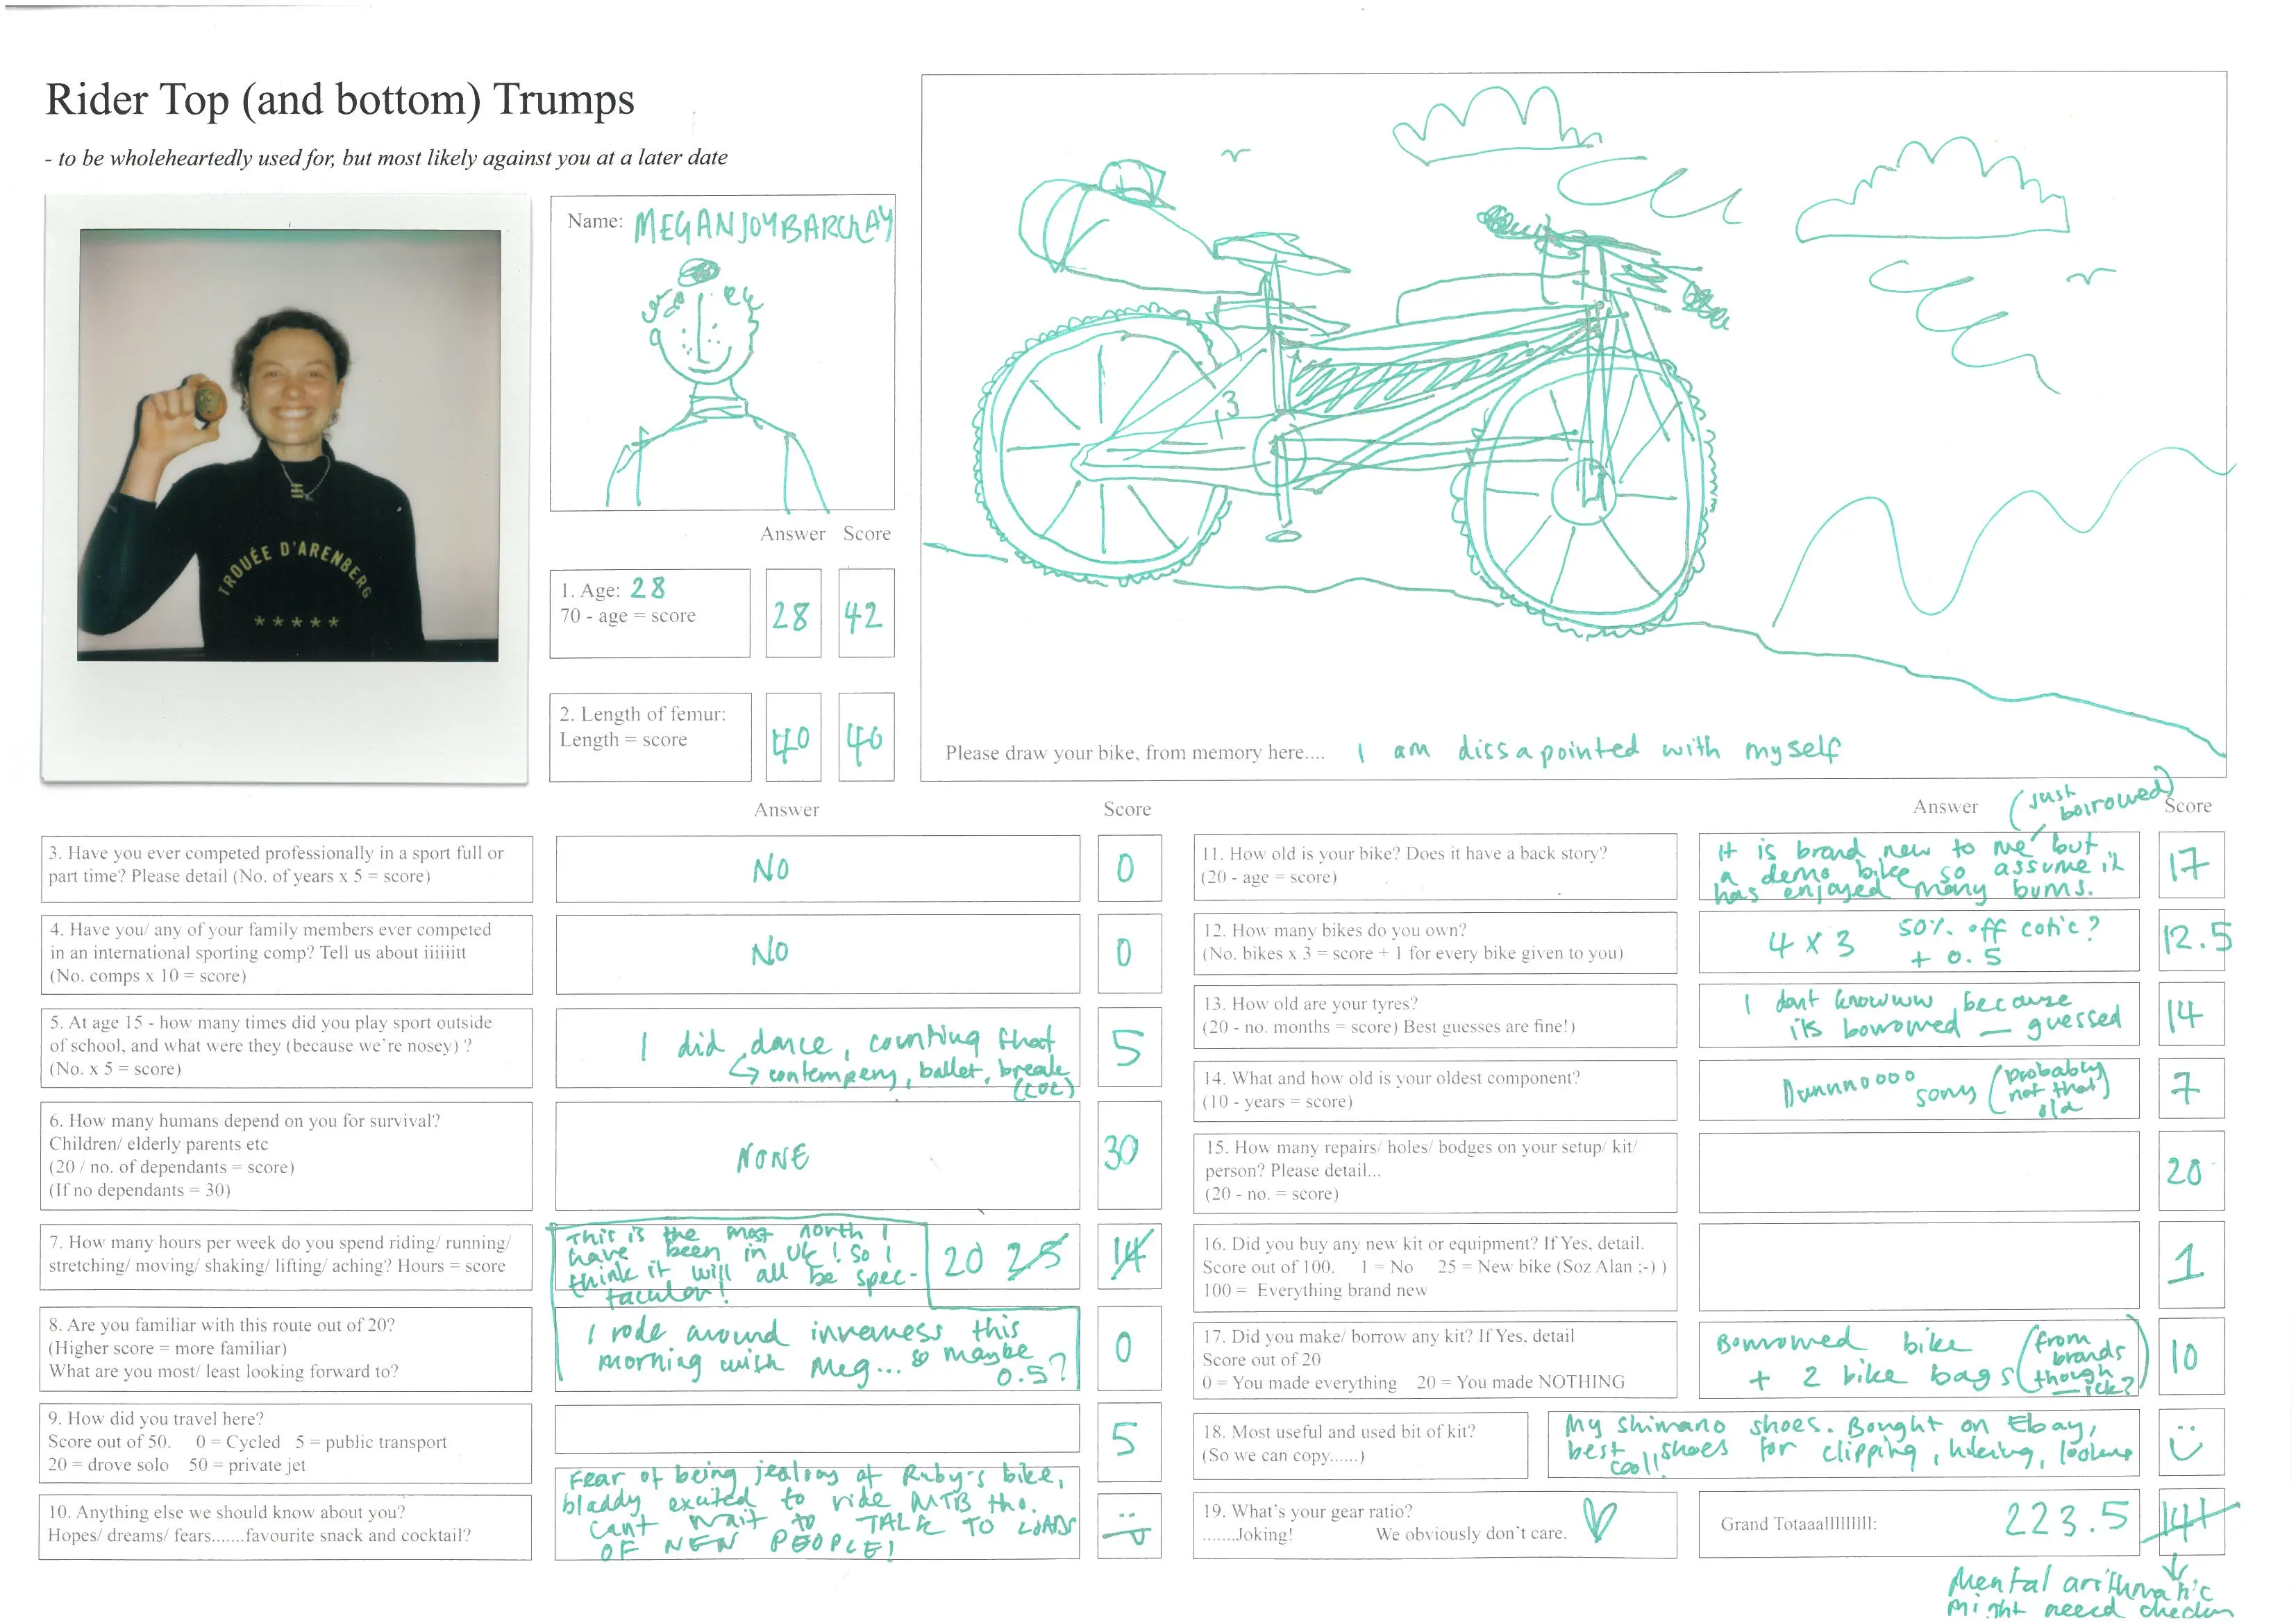 Rider Top (and bottom) Trumps
- to be wholeheartedly used for, but most likely against you at a later date
TROUÉE D'ARENBERG
*****
Name: MEGAN JOY BARCLAY
Answer Score
1. Age: 28
70 - age = score
28 42
2. Length of femur:
Length = score
40 40
Please draw your bike, from memory here.... I am dissapointed with myself
Answer Score
3. Have you ever competed professionally in a sport full or
part time? Please detail (No. of years x 5 = score)
NO
0
4. Have you/ any of your family members ever competed
in an international sporting comp? Tell us about iiiiiitt
(No. comps x 10 = score)
NO
0
5. At age 15 - how many times did you play sport outside
of school, and what were they (because we're nosey) ?
(No. x 5 = score)
I did dance, counting that
↳ contempery, ballet, break
(LOL)
5
6. How many humans depend on you for survival?
Children/ elderly parents etc
(20 / no. of dependants = score)
(If no dependants = 30)
NONE
30
7. How many hours per week do you spend riding/ running/
stretching/ moving/ shaking/ lifting/ aching? Hours = score
20 25
14
8. Are you familiar with this route out of 20?
(Higher score = more familiar)
What are you most/ least looking forward to?
This is the most north I
have been in UK! So I
think it will all be spec-
tacular!
I rode around inverness this
morning with Meg... so maybe
0.5?
0
9. How did you travel here?
Score out of 50. 0 = Cycled 5 = public transport
20 = drove solo 50 = private jet
5
10. Anything else we should know about you?
Hopes/ dreams/ fears.......favourite snack and cocktail?
Fear of being jealous of Ruby's bike,
bladdy excited to ride MTB tho.
Cant wait to TALK TO LOADS
OF NEW PEOPLE!
Answer Score
11. How old is your bike? Does it have a back story?
(20 - age = score)
(just
borrowed)
It is brand new to me but
a demo bike so assume it
has enjoyed many bums.
17
12. How many bikes do you own?
(No. bikes x 3 = score + 1 for every bike given to you)
4 x 3 50% off cotic?
+ 0.5
12.5
13. How old are your tyres?
(20 - no. months = score) Best guesses are fine!)
I dont knowww because
its borrowed — guessed
14
14. What and how old is your oldest component?
(10 - years = score)
Dunnnoooo sorry (probably
not that
old)
7
15. How many repairs/ holes/ bodges on your setup/ kit/
person? Please detail...
(20 - no. = score)
20
16. Did you buy any new kit or equipment? If Yes, detail.
Score out of 100. 1 = No 25 = New bike (Soz Alan ;-) )
100 = Everything brand new
1
17. Did you make/ borrow any kit? If Yes, detail
Score out of 20
0 = You made everything 20 = You made NOTHING
Borrowed bike
+ 2 bike bags (from
brands
though
— ick?)
10
18. Most useful and used bit of kit?
(So we can copy......)
My shimano shoes. Bought on Ebay,
best shoes for clipping, hiking, looking
cool!
19. What's your gear ratio?
.......Joking! We obviously don't care.
Grand Totaaalllllllll:
223.5 141
Mental arithmatic
might need checkin